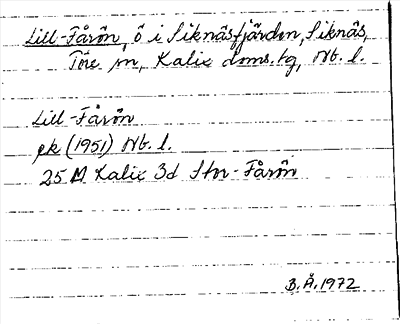 Lill-Fårön, ö i Siknäsfjärden, Siknäs,
Töre sn, Kalix doms.tg, Nb. l.
Lill-Fårön
ek (1951) Nb. l.
25 M Kalix 3d Stor-Fårön
B.Å.1972